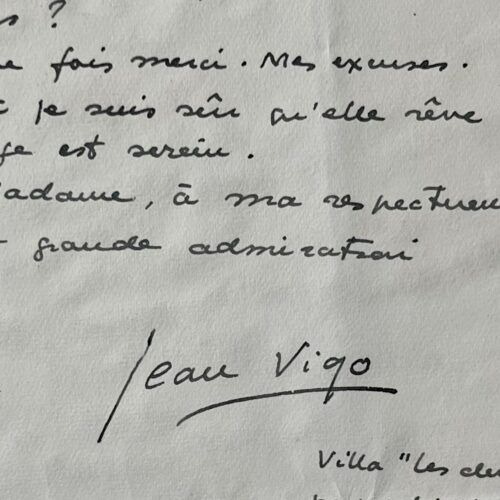 ?
fois merci. Mes excuses.
je suis sûr qu'elle rêve
est serein.
adame, à ma respectueu
grande admiration
Jean Vigo
Villa "Les